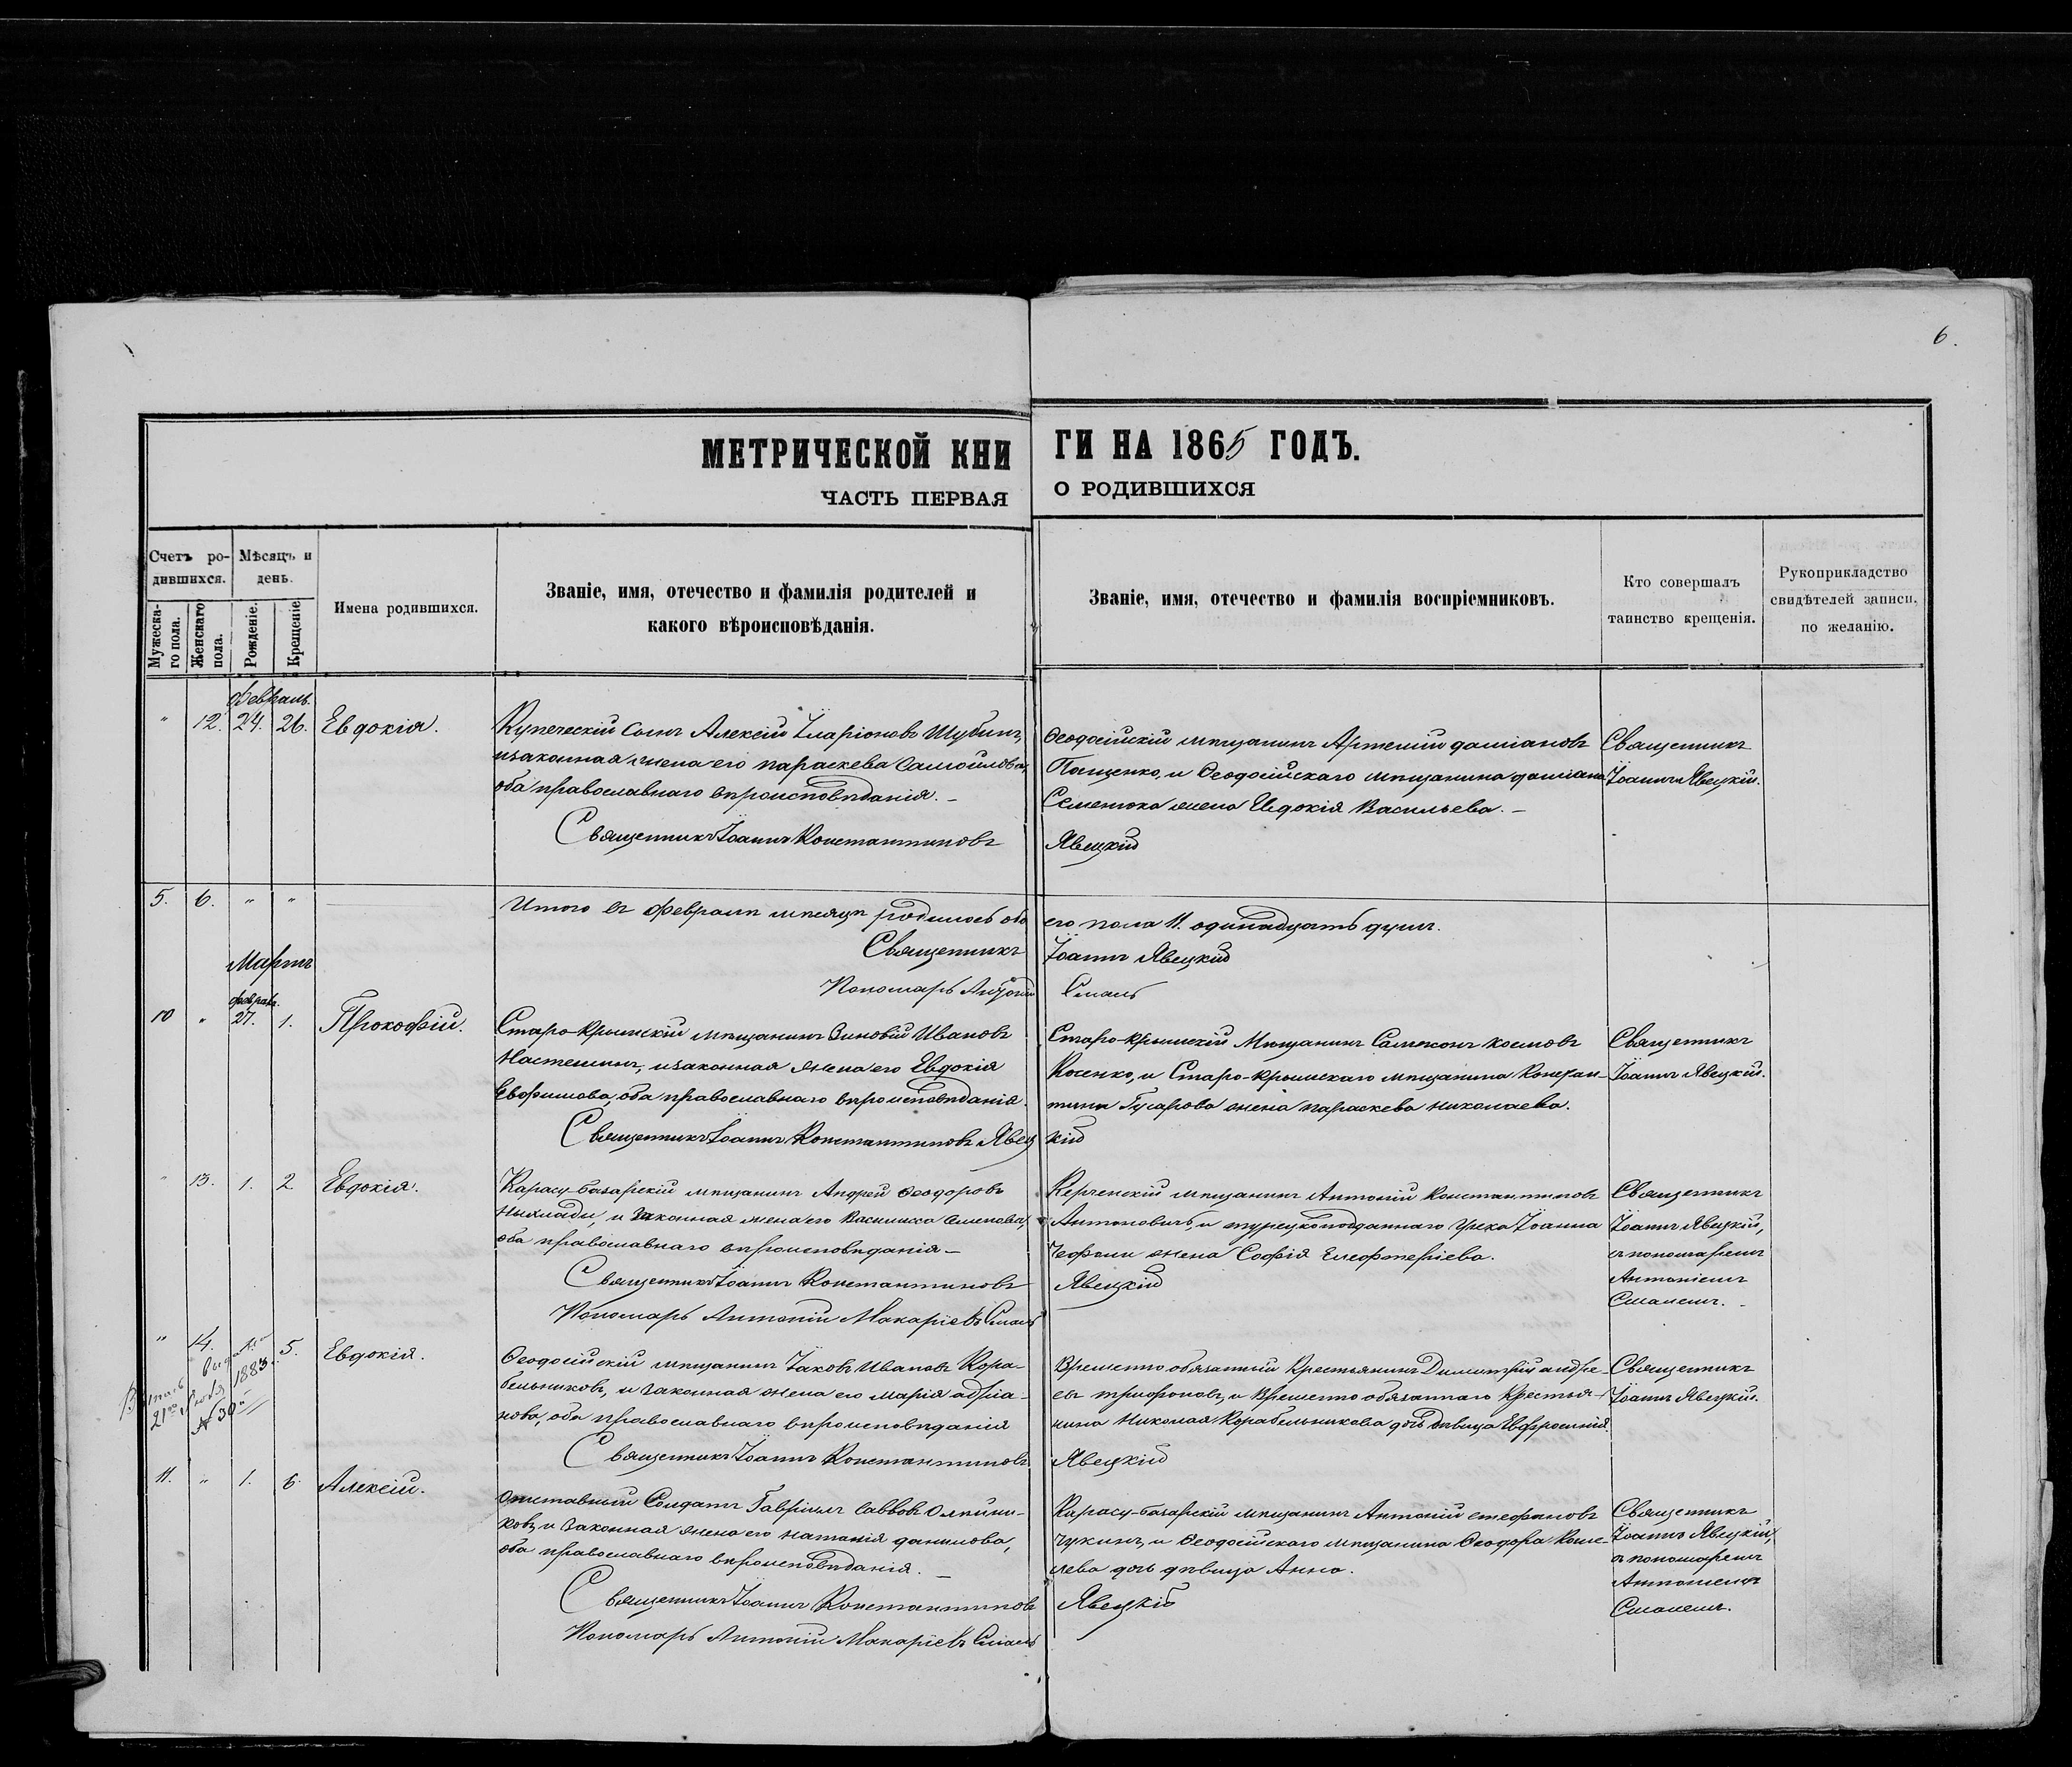 6.
МЕТРИЧЕСКОЙ КНИ ГИ НА 1865 ГОДЪ.
ЧАСТЬ ПЕРВАЯ О РОДИВШИХСЯ
Счетъ ро-
дившихся.
Мѣсяцъ и
день.
Мужеска-
го пола.
Женскаго
пола.
Рожденіе.
Крещеніе
Имена родившихся.
Званіе, имя, отечество и фамилія родителей и
какого вѣроисповѣданія.
Званіе, имя, отечество и фамилія воспріемниковъ.
Кто совершалъ
таинство крещенія.
Рукоприкладство
свидѣтелей записи,
по желанію.
Февраль.
" 12. 24. 26. Евдокія.
Купеческій сынъ Алексій Іларіоновъ Шубинъ,
и законная жена его параскева Самойлова,
оба православнаго вѣроисповѣданія. –
Священникъ Іоаннъ Константиновъ
Ѳеодосійскій мѣщанинъ Артемій даміановъ
Пащенко, и Ѳеодосійскаго мѣщанина даміана
Семенюка жена Евдокія Васильева. –
Явецкій
Священникъ
Іоаннъ Явецкій.
5. 6. " "
Итого въ февралѣ мѣсяцѣ родилось обо его пола 11. одинадцать душъ.
Священникъ Іоаннъ Явецкій
Пономарь Антоній Смаль
Мартъ
февраль.
10 " 27. 1. Прокофій.
Старо-Крымскій мѣщанинъ Зиновій Ивановъ
и законная жена его Евдокія
Евфимова, оба православнаго вѣроисповѣданія.
Священникъ Іоаннъ Константиновъ Явец кій
Старо-Крымскій Мѣщанинъ Самсонъ космовъ
Косенко, и Старо-Крымскаго мѣщанина Констан-
тина Гусарова жена параскева николаева.
Священникъ
Іоаннъ Явецкій.
" 13. 1. 2 Евдокія.
Карасу-базарскій мѣщанинъ Андрей Ѳеодоровъ
и законная жена его Василиса Семенова,
оба православнаго вѣроисповѣданія –
Священникъ Іоаннъ Константиновъ
Пономарь Антоній Макаріевъ Смаль
Керченскій мѣщанинъ Антоній Константиновъ
Антоновичъ, и турецкоподданнаго грека Іоанна
жена Софія Елефтеріева.
Явецкій
Священникъ
Іоаннъ Явецкій,
съ пономаремъ
Антоніемъ
Смалемъ. –
" 14. 5. Евдокія.
21го 1883. № 30й
Ѳеодосійскій мѣщанинъ Іаковъ Ивановъ Кора-
бельниковъ, и законная жена его марія адріа-
нова, оба православнаго вѣроисповѣданія
Священникъ Іоаннъ Константиновъ
Временно обязанный Крестьянинъ Димитрій андре-
евъ трифоновъ, и Временно обязаннаго крестья-
нина Николая Корабельникова дочь дѣвица Евфросинія.
Явецкій
Священникъ
Іоаннъ Явецкій.
11. " 1. 6. Алексій.
Отставный Солдатъ Гавріилъ Саввовъ Олѣйни-
ковъ, и законная жена его наталія данилова,
оба православнаго вѣроисповѣданія. –
Священникъ Іоаннъ Константиновъ
Пономарь Антоній Макаріевъ Смаль
Карасу-базарскій мѣщанинъ Антоній стефановъ
чукинъ, и Ѳеодосійскаго мѣщанина Ѳеодора Коше-
лева дочь дѣвица Анна.
Явецкій
Священникъ
Іоаннъ Явецкій,
съ пономаремъ
Антоніемъ
Смалемъ.